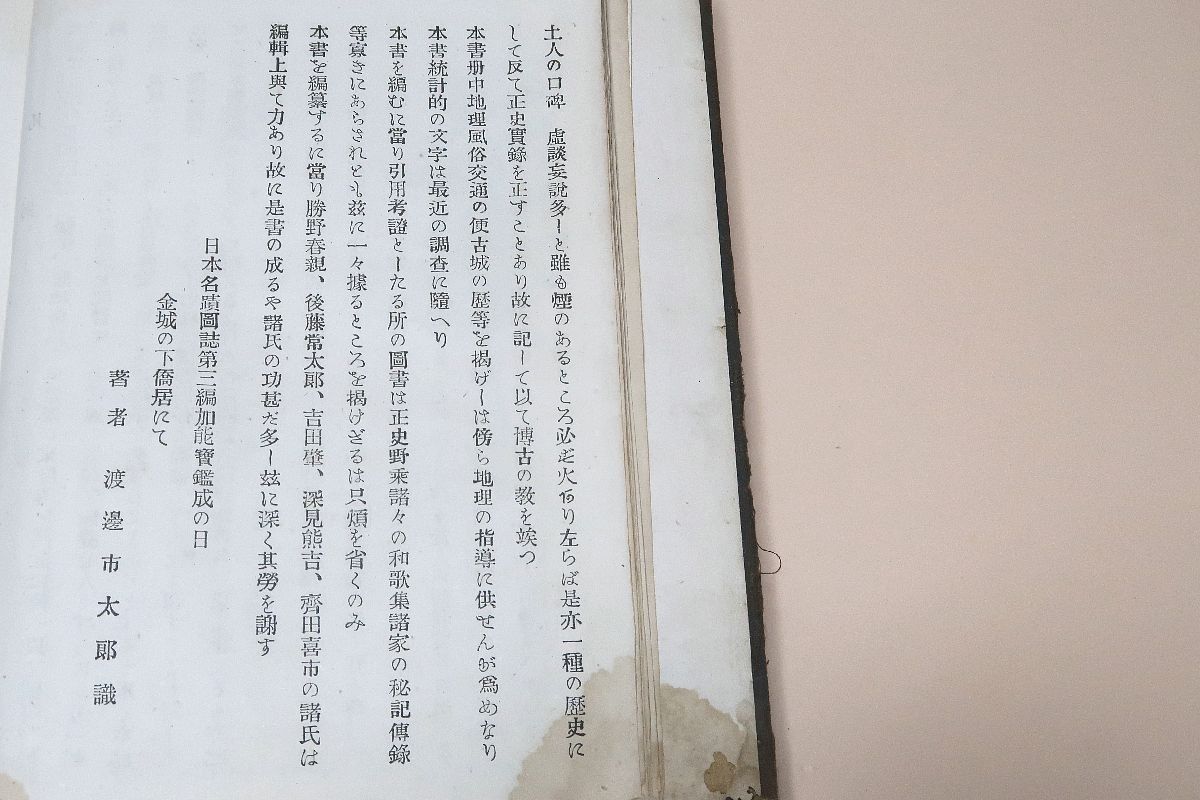 土人の口碑　虛談妄說多しと雖も煙のあるところ必ず火あり左らば是亦一種の歷史に
して反て正史實錄を正すことあり故に記して以て博古の教を竢つ
本書册中地理風俗交通の便古城の歷等を揭げしは傍ら地理の指導に供せんが爲めなり
本書統計的の文字は最近の調查に隨へり
本書を編むに當り引用考證としたる所の圖書は正史野乘諸々の和歌集諸家の秘記傳錄
等寡きにあらされとも玆に一々據るところを揭けざるは只煩を省くのみ
本書を編纂するに當り勝野春親、後藤常太郎、吉田肇、深見熊吉、齊田喜市の諸氏は
編輯上與て力あり故に是書の成るや諸氏の功甚だ多し玆に深く其勞を謝す
日本名蹟圖誌第三編加能寶鑑成の日
金城の下僑居にて
著者　渡邊市太郎識